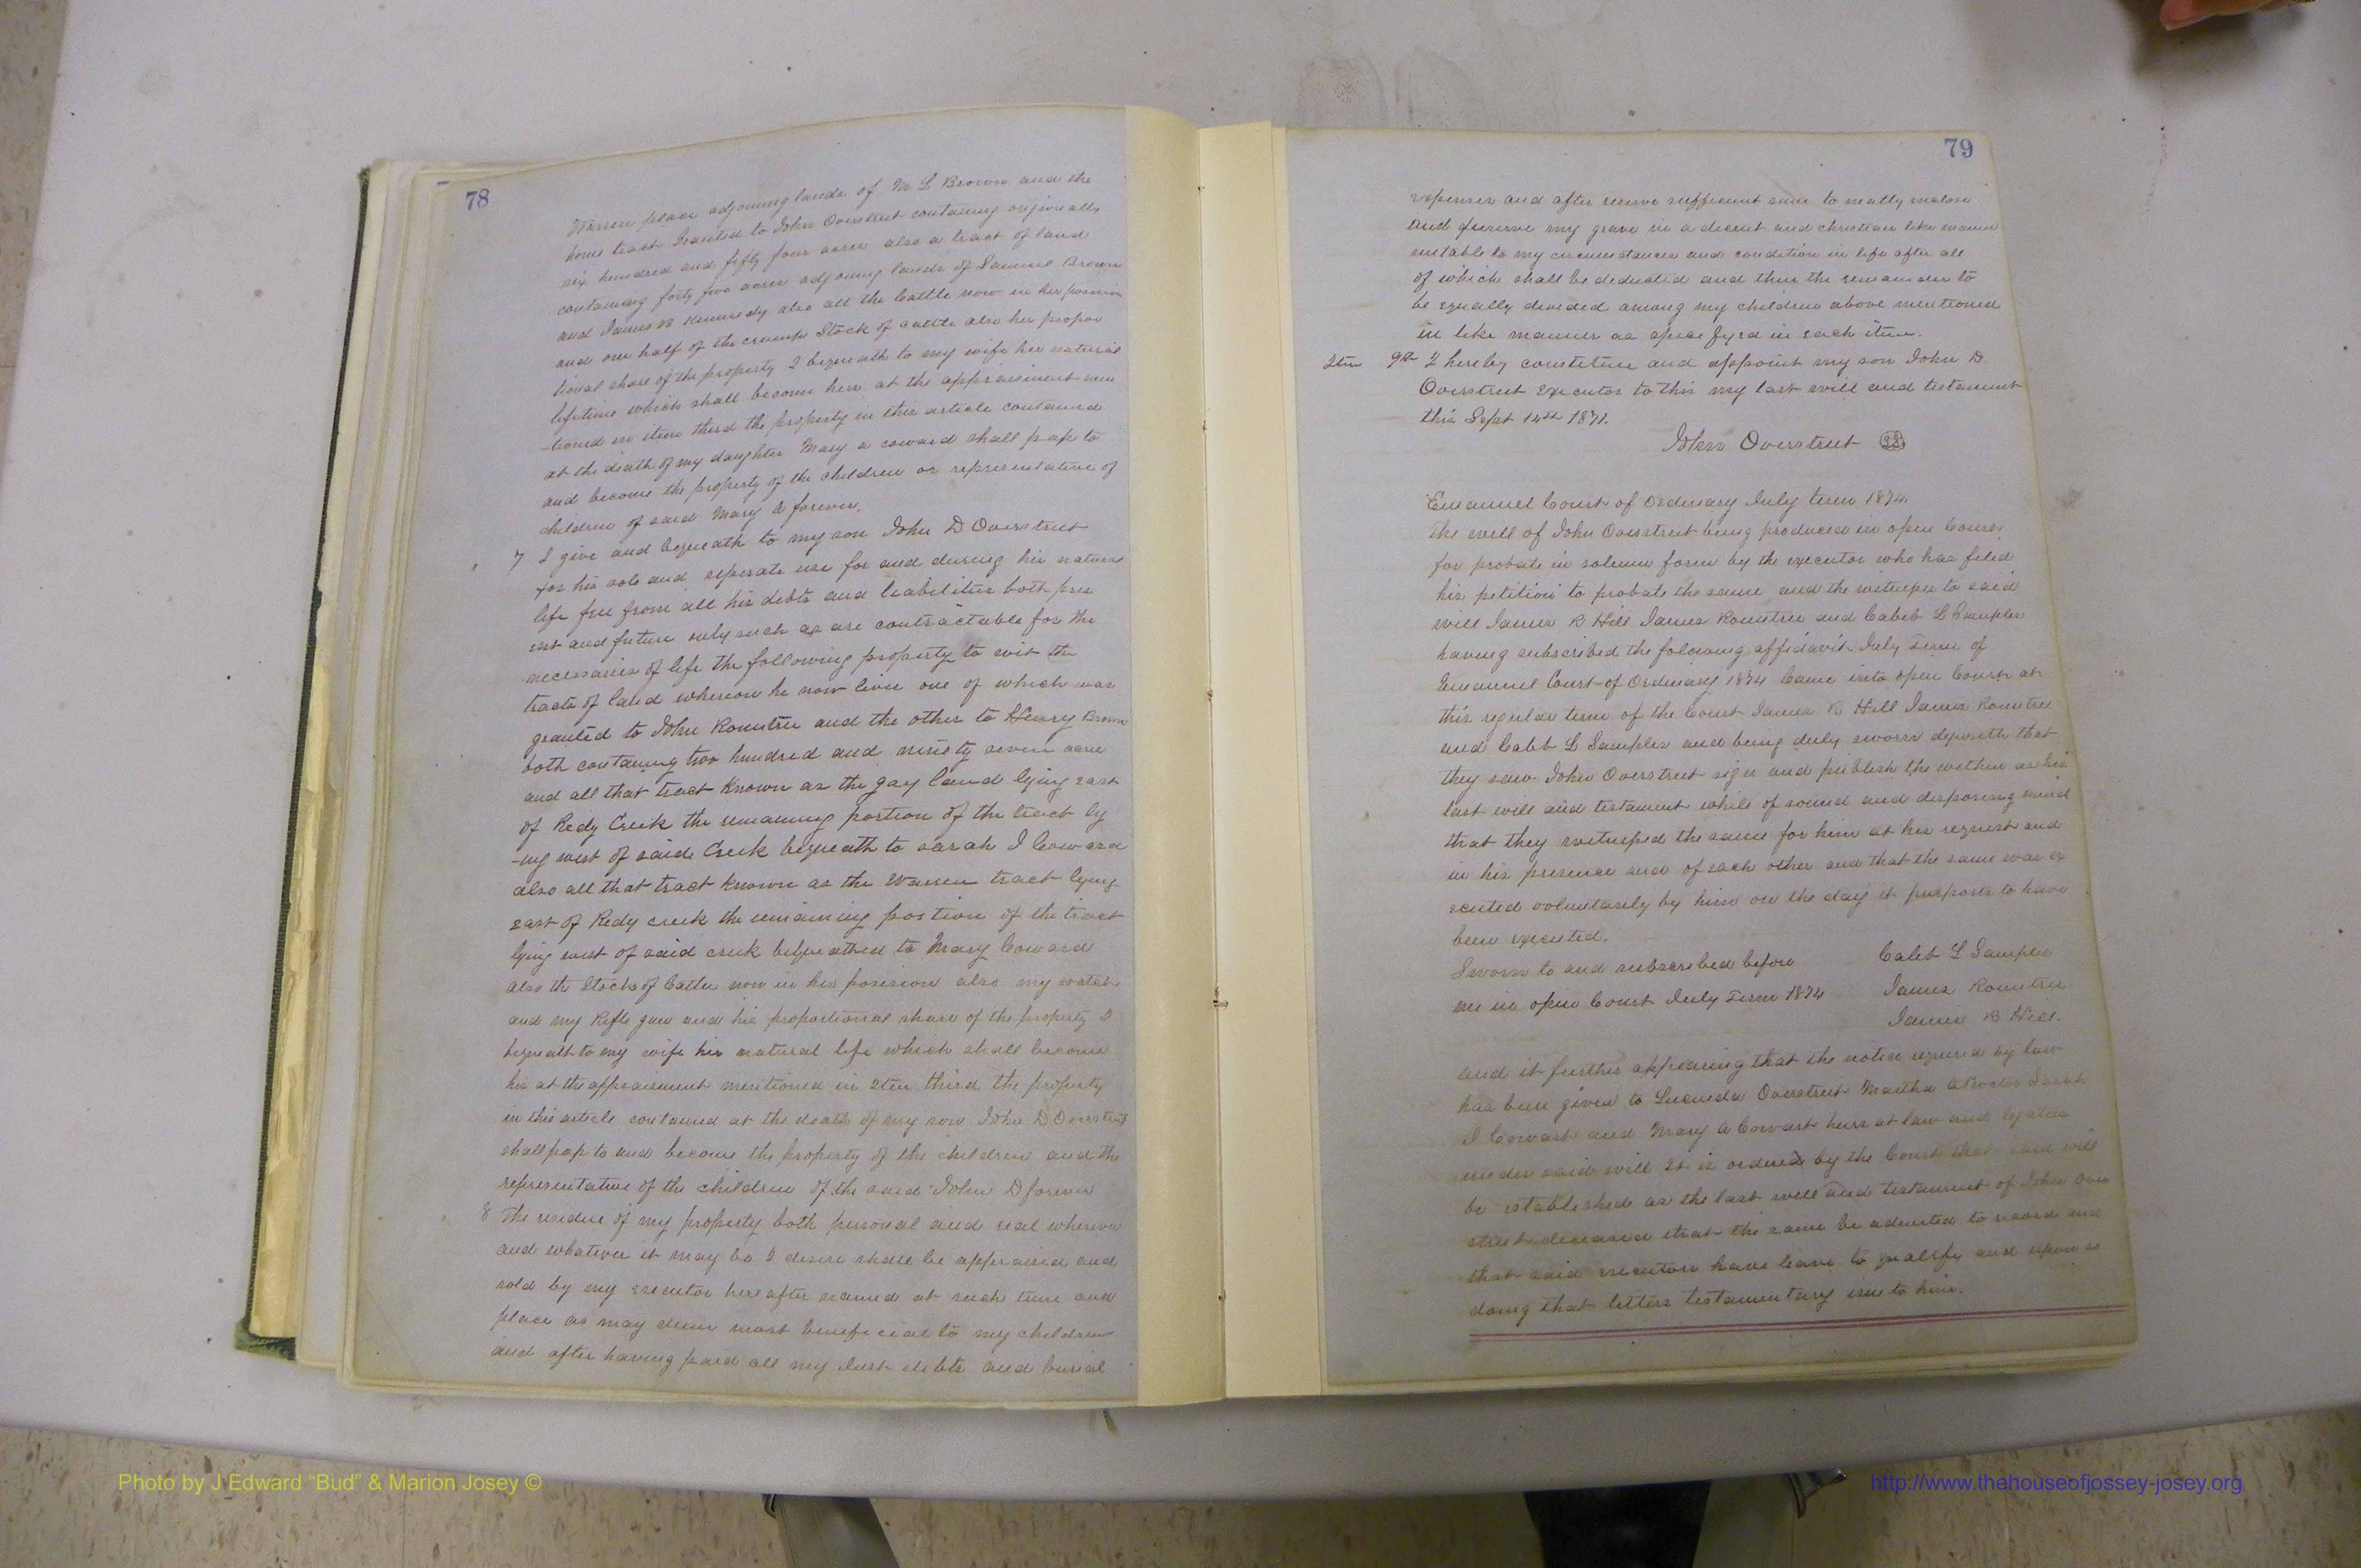 78
Warren place adjoining lands of M L Brown and the
home tract Granted to John Overstreet containing origionally
six hundred and fifty four acres also a tract of land
containing forty five acres adjoining lands of Samuel Brown
and James R Kennedy also all the Cattle now in her possession
and one half of the crump Stock of cattle also her propor
tional share of the property I bequeath to my wife her natural
lifetime which shall become hers at the appraisement men
-tioned in item third the property in this article contained
at the death of my daughter Mary a coward shall pass to
and become the property of the children or representative of
children of said Mary A forever,
7 I give and bequeath to my son John D Overstreet
for his sole and seperate use for and during his natural
life free from all his debts and leabilities both pres
ent and future only such as are contractable for the
necessaries of life the following property to wit the
tracts of land whereon he now lives one of which was
granted to John Rountree and the other to Henry Brown
both containing two hundred and ninety seven acres
and all that tract known as the gay land lying east
of Redy Creek the remaining portion of the tract ly
-ing west of said Creek bequeath to sarah I Coward
also all that tract known as the Warren tract lying
east of Redy creek the remaining portion of the tract
lying west of said creek bequeathed to Mary Coward
also the Stock of Cattle now in his possesion also my watch
and my Rifle gun and his proportional share of the property I
bequeath to my wife her natural life which shall become
his at the appraisment mentioned in Item third the property
in this article contained at the death of my son John D Overstreet
shall pass to and become the property of the children and the
representative of the children of the said John D forever
8 The residue of my property both personal and real wherever
and whatever it may be I desire shall be appraised and
sold by my executor hereafter named at such time and
place as may deem most beneficial to my children
and after having paid all my Just debts and burial
79
expenses and after reserve sufficient sum to neatly enclose
and preserve my grave in a decent and christian like manner
suitable to my circumstances and condition in life after all
of which shall be deducted and then the remainder to
be equally devided among my children above mentioned
in like manner as specifyed in each item.
Item 9th I hereby constitute and appoint my son John D
Overstreet Executor to this my last will and testament
this Sept 14th 1871.
John Overstreet
Emanuel Court of Ordinary July term 1874.
The will of John Overstreet being produced in open Court
for probate in solemn form by the executor who has filed
his petition to probate the same and the witnesses to said
will James R Hill James Rountree and Caleb L Samples
having subscribed the folowing affidavit July Term of
Emanuel Court of Ordinary 1874 Came into open Court at
this regular term of the Court James R Hill James Rountree
and Caleb L Samples and being duly sworn deposeth that
they saw John Overstreet sign and publish the within as his
last will and testament while of sound and disposing mind
that they witnessed the same for him at his request and
in his presence and of each other and that the same was ex
ecuted voluntarely by him on the day it purports to have
been executed.
Sworn to and subscribed before Caleb L Samples
me in open Court July Term 1874 James Rountree
James R Hill.
and it further appearing that the notice required by law
has been given to Lucinda Overstreet Martha A Proctor Sarah
I Cowart and Mary A Cowart heirs at law and legatees
under said will It is ordered by the Court that said will
be established as the last will and testament of John Over
street deceased that the same be admited to record and
that said executor have leave to qualify and upon so
doing that letters testamentary issue to him.
Photo by J Edward “Bud” & Marion Josey ©
http://www.thehouseofjossey-josey.org